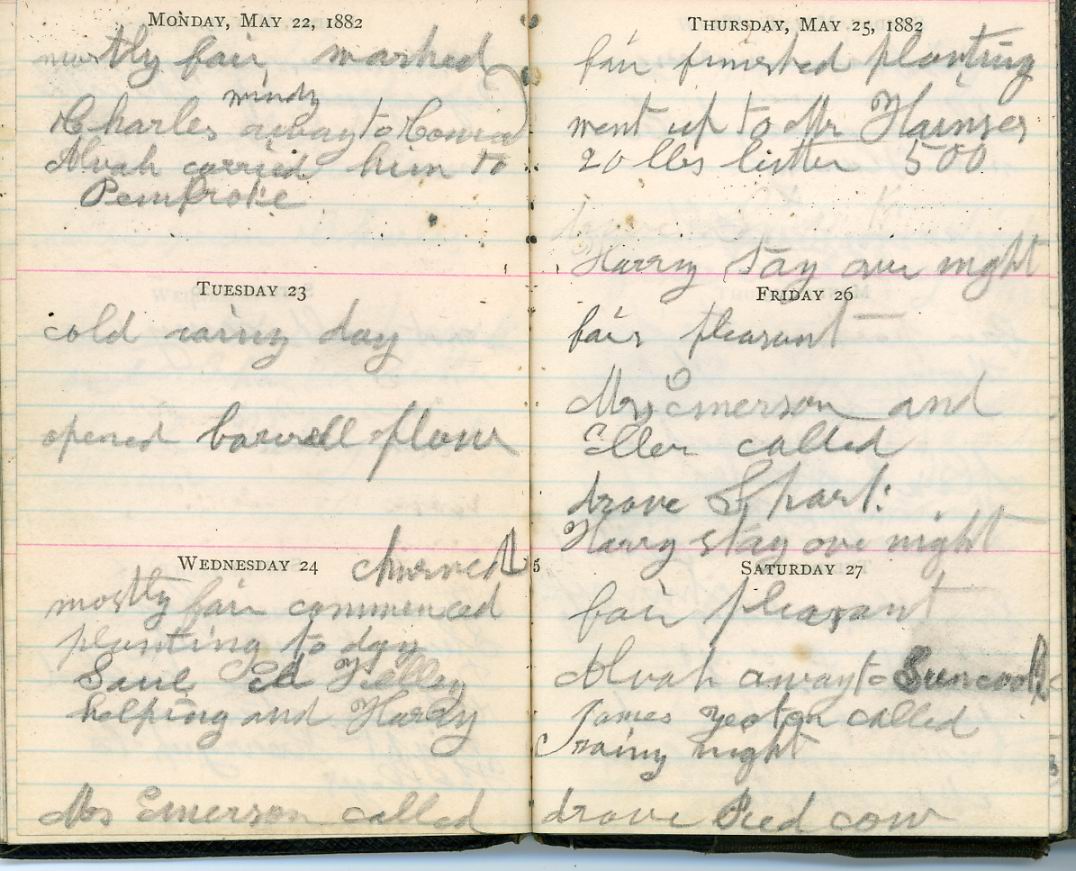 MONDAY, MAY 22, 1882
mostly fair washed
windy
Charles away to
Alvah carried him to
Pembroke
TUESDAY 23
cold rainy day
opened barrell flour
WEDNESDAY 24 churned
mostly fair commenced
planting to day
Ed
helping and Harry
Mrs Emerson called
THURSDAY, MAY 25, 1882
fair finished planting
went up to Mr
20 lbs 500
Harry stay over night
FRIDAY 26
fair pleasant
Mrs Emerson and
Eller called
drove
Harry stay ove night
5
SATURDAY 27
fair pleasant
Alvah away to Suncook
James Yeaton called
rainy night
drove Red cow